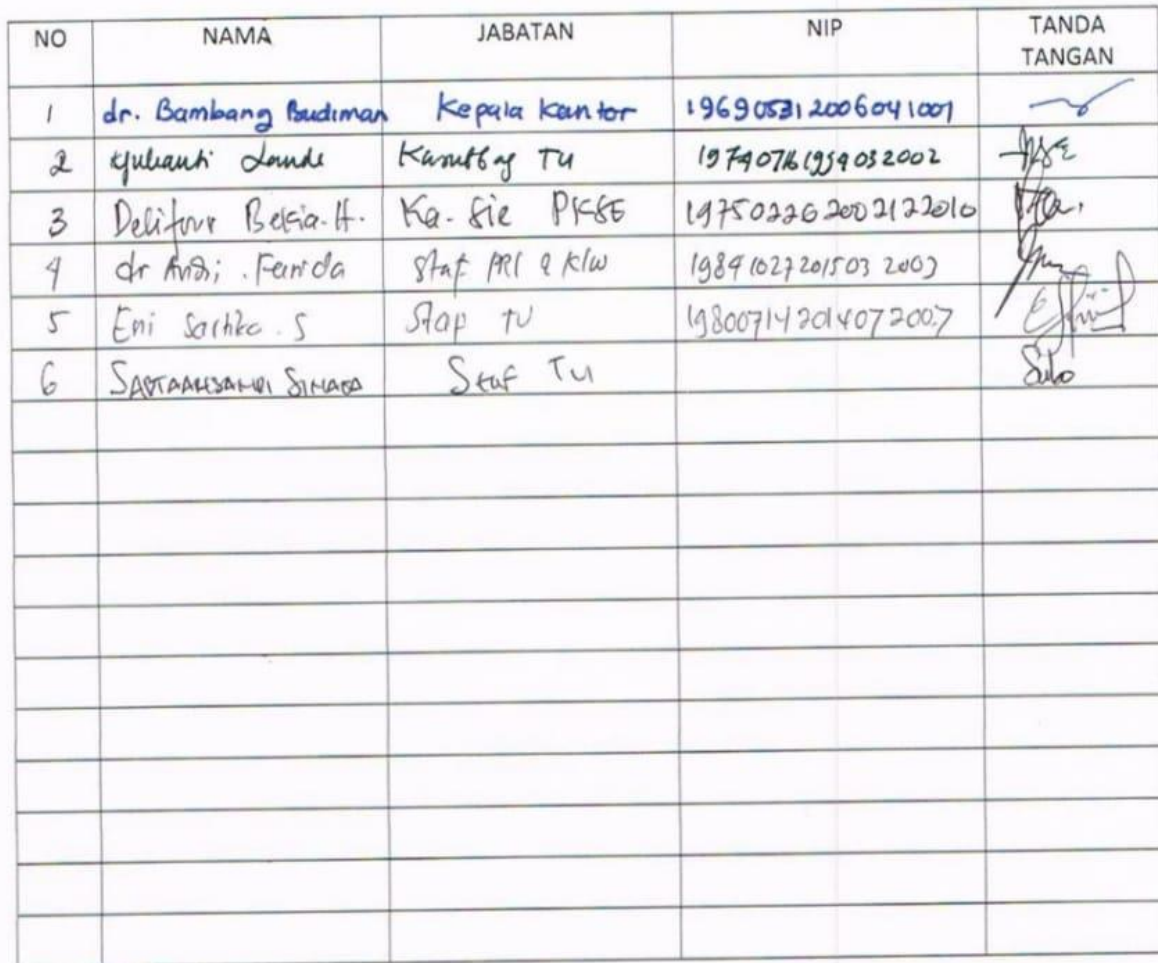 NO NAMA JABATAN NIP TANDA TANGAN
1 dr. Bambang Budiman Kepala Kantor 196905312006041001
2 Yulianti Lande Kasubbag TU 197407161999032002
3 Belsia. H. Ka. Sie PKSE 197502262002122010
4 dr Andi . Farida Staf PRL & KLW 198410272015032003
5 Eni S Stap TU 198007142014072007
6 Staf TU